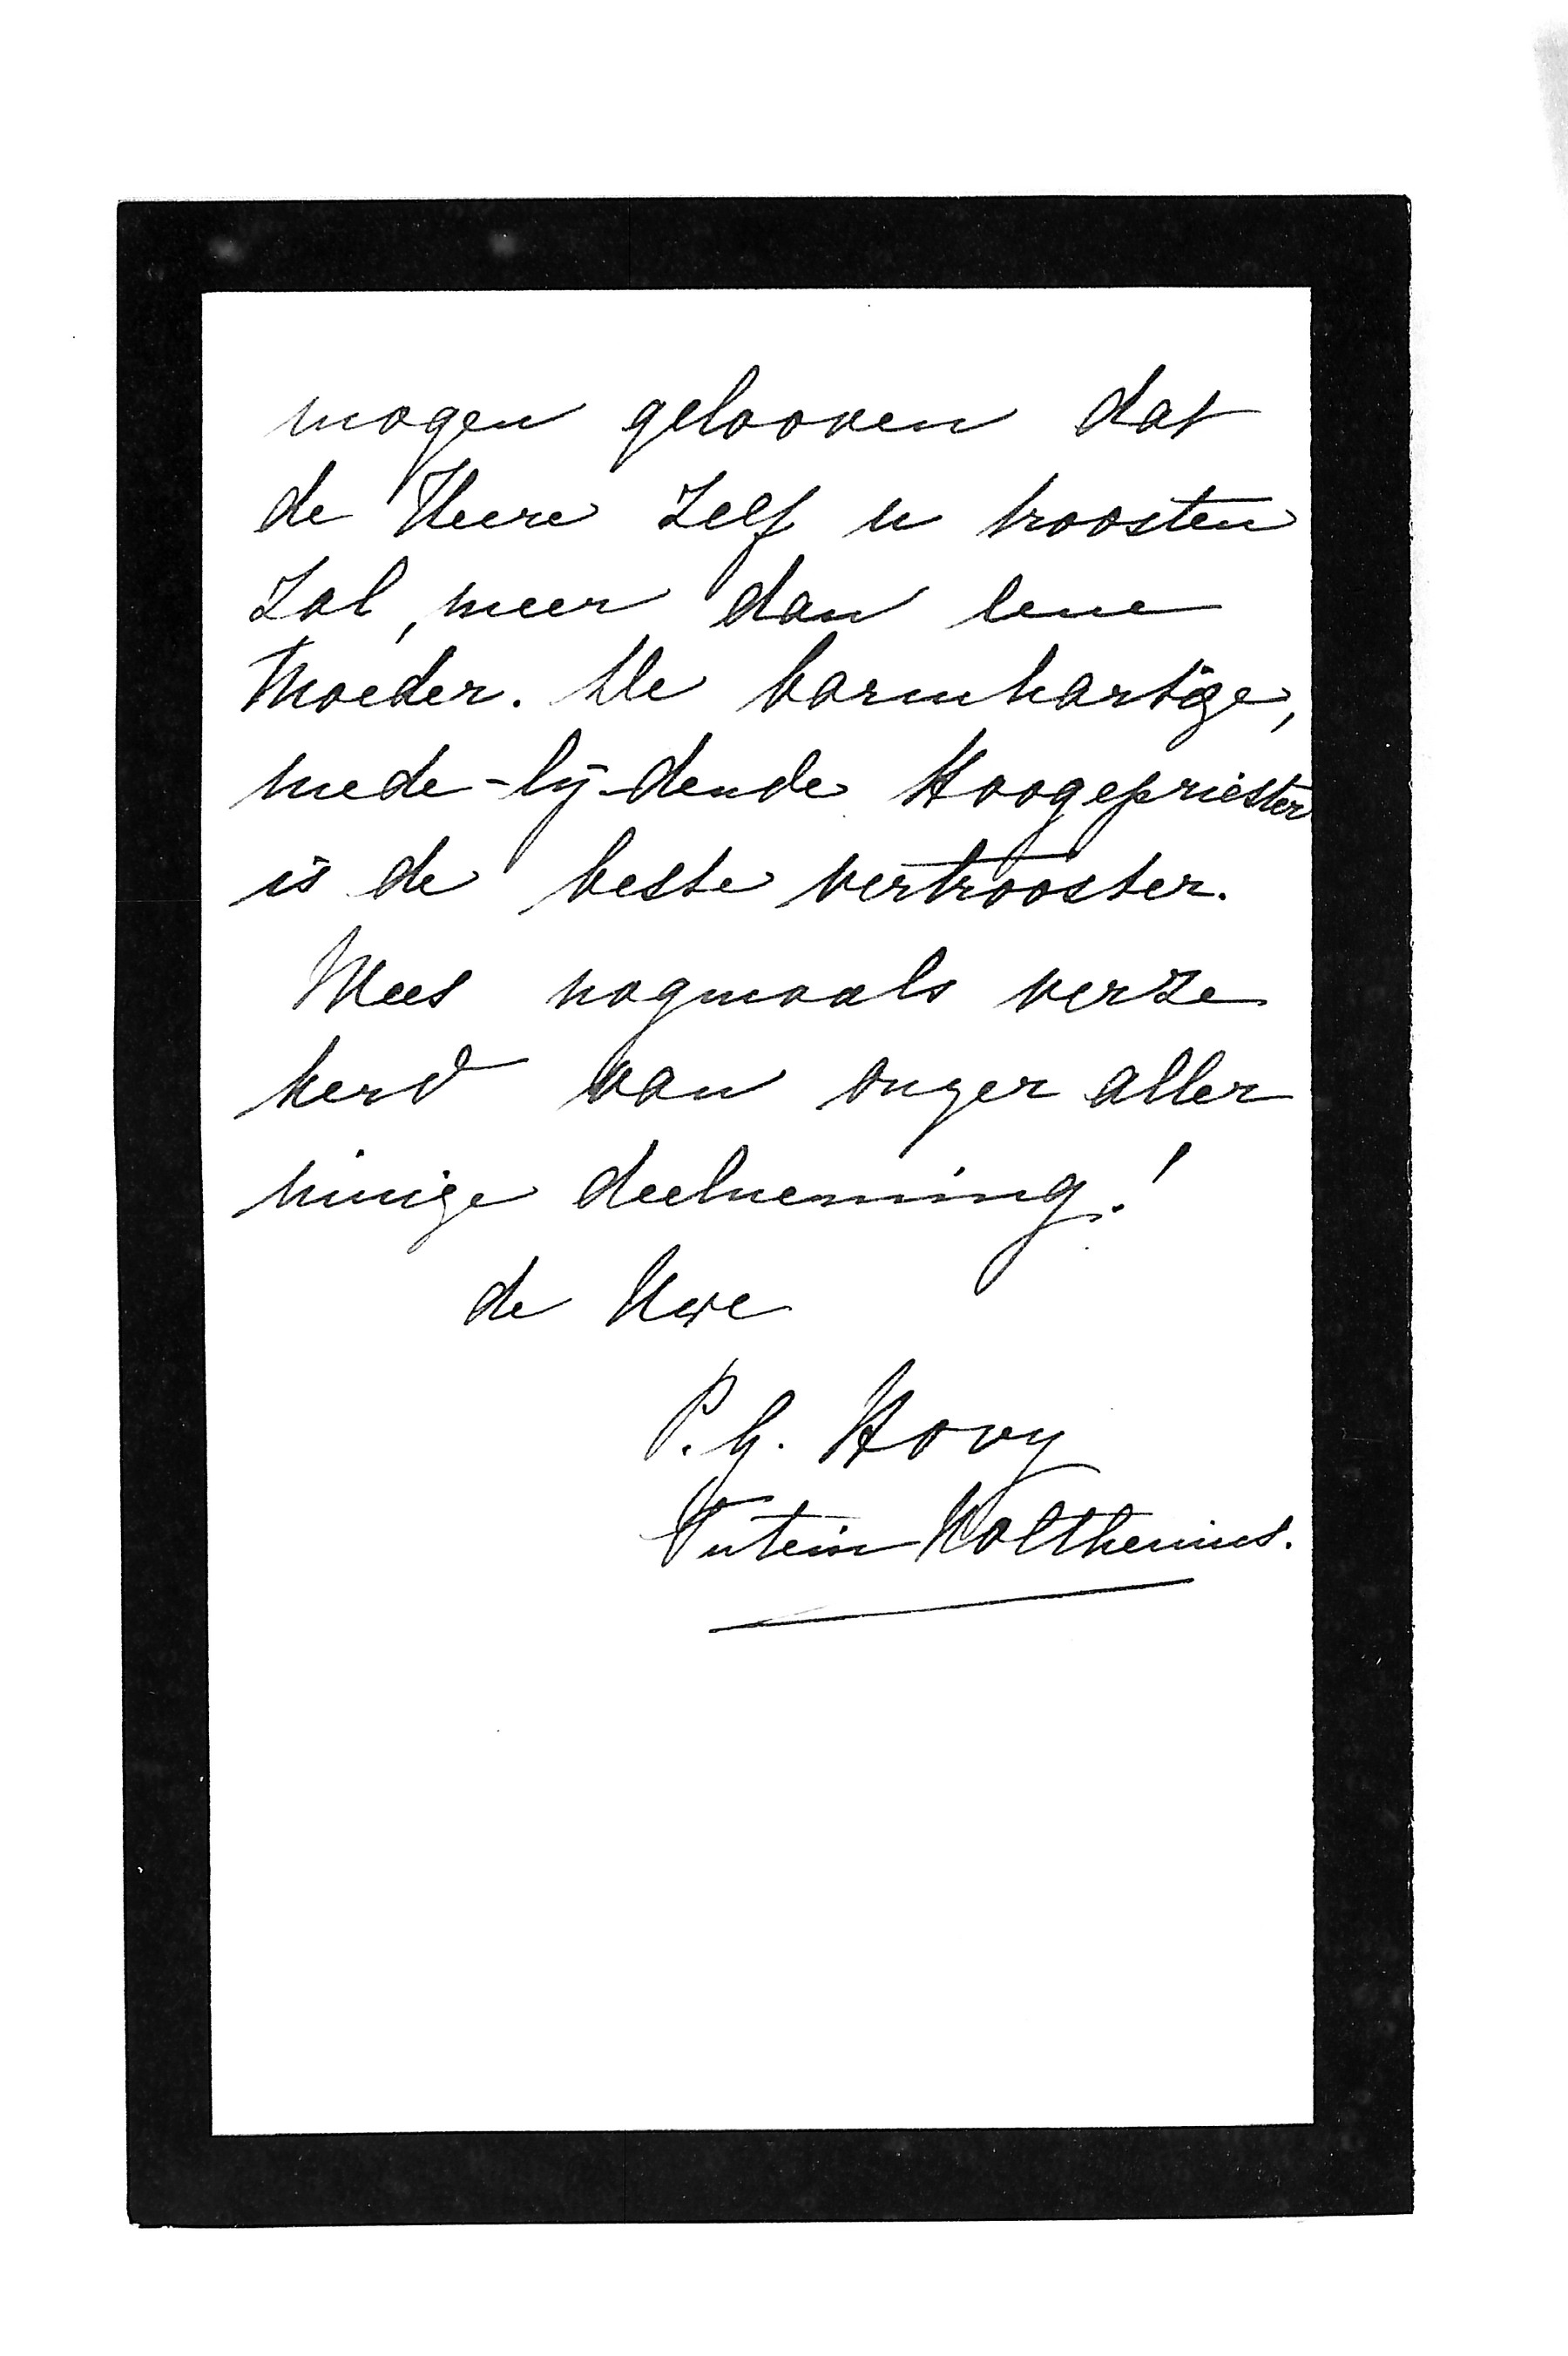 mogen gelooven dat
de Heere Zelf u troosten
zal, meer dan eene
Moeder. De barmhartige,
mede-lij-dende Hoogepriester
is de beste vertrooster.
Wees nogmaals verze
kerd van onzer aller
innige deelneming!
de Uwe
P.G. Hovy
Tutein Nolthenius.